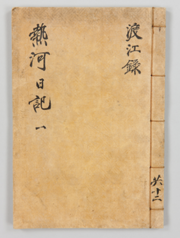 渡江錄
共十二
熱河日記